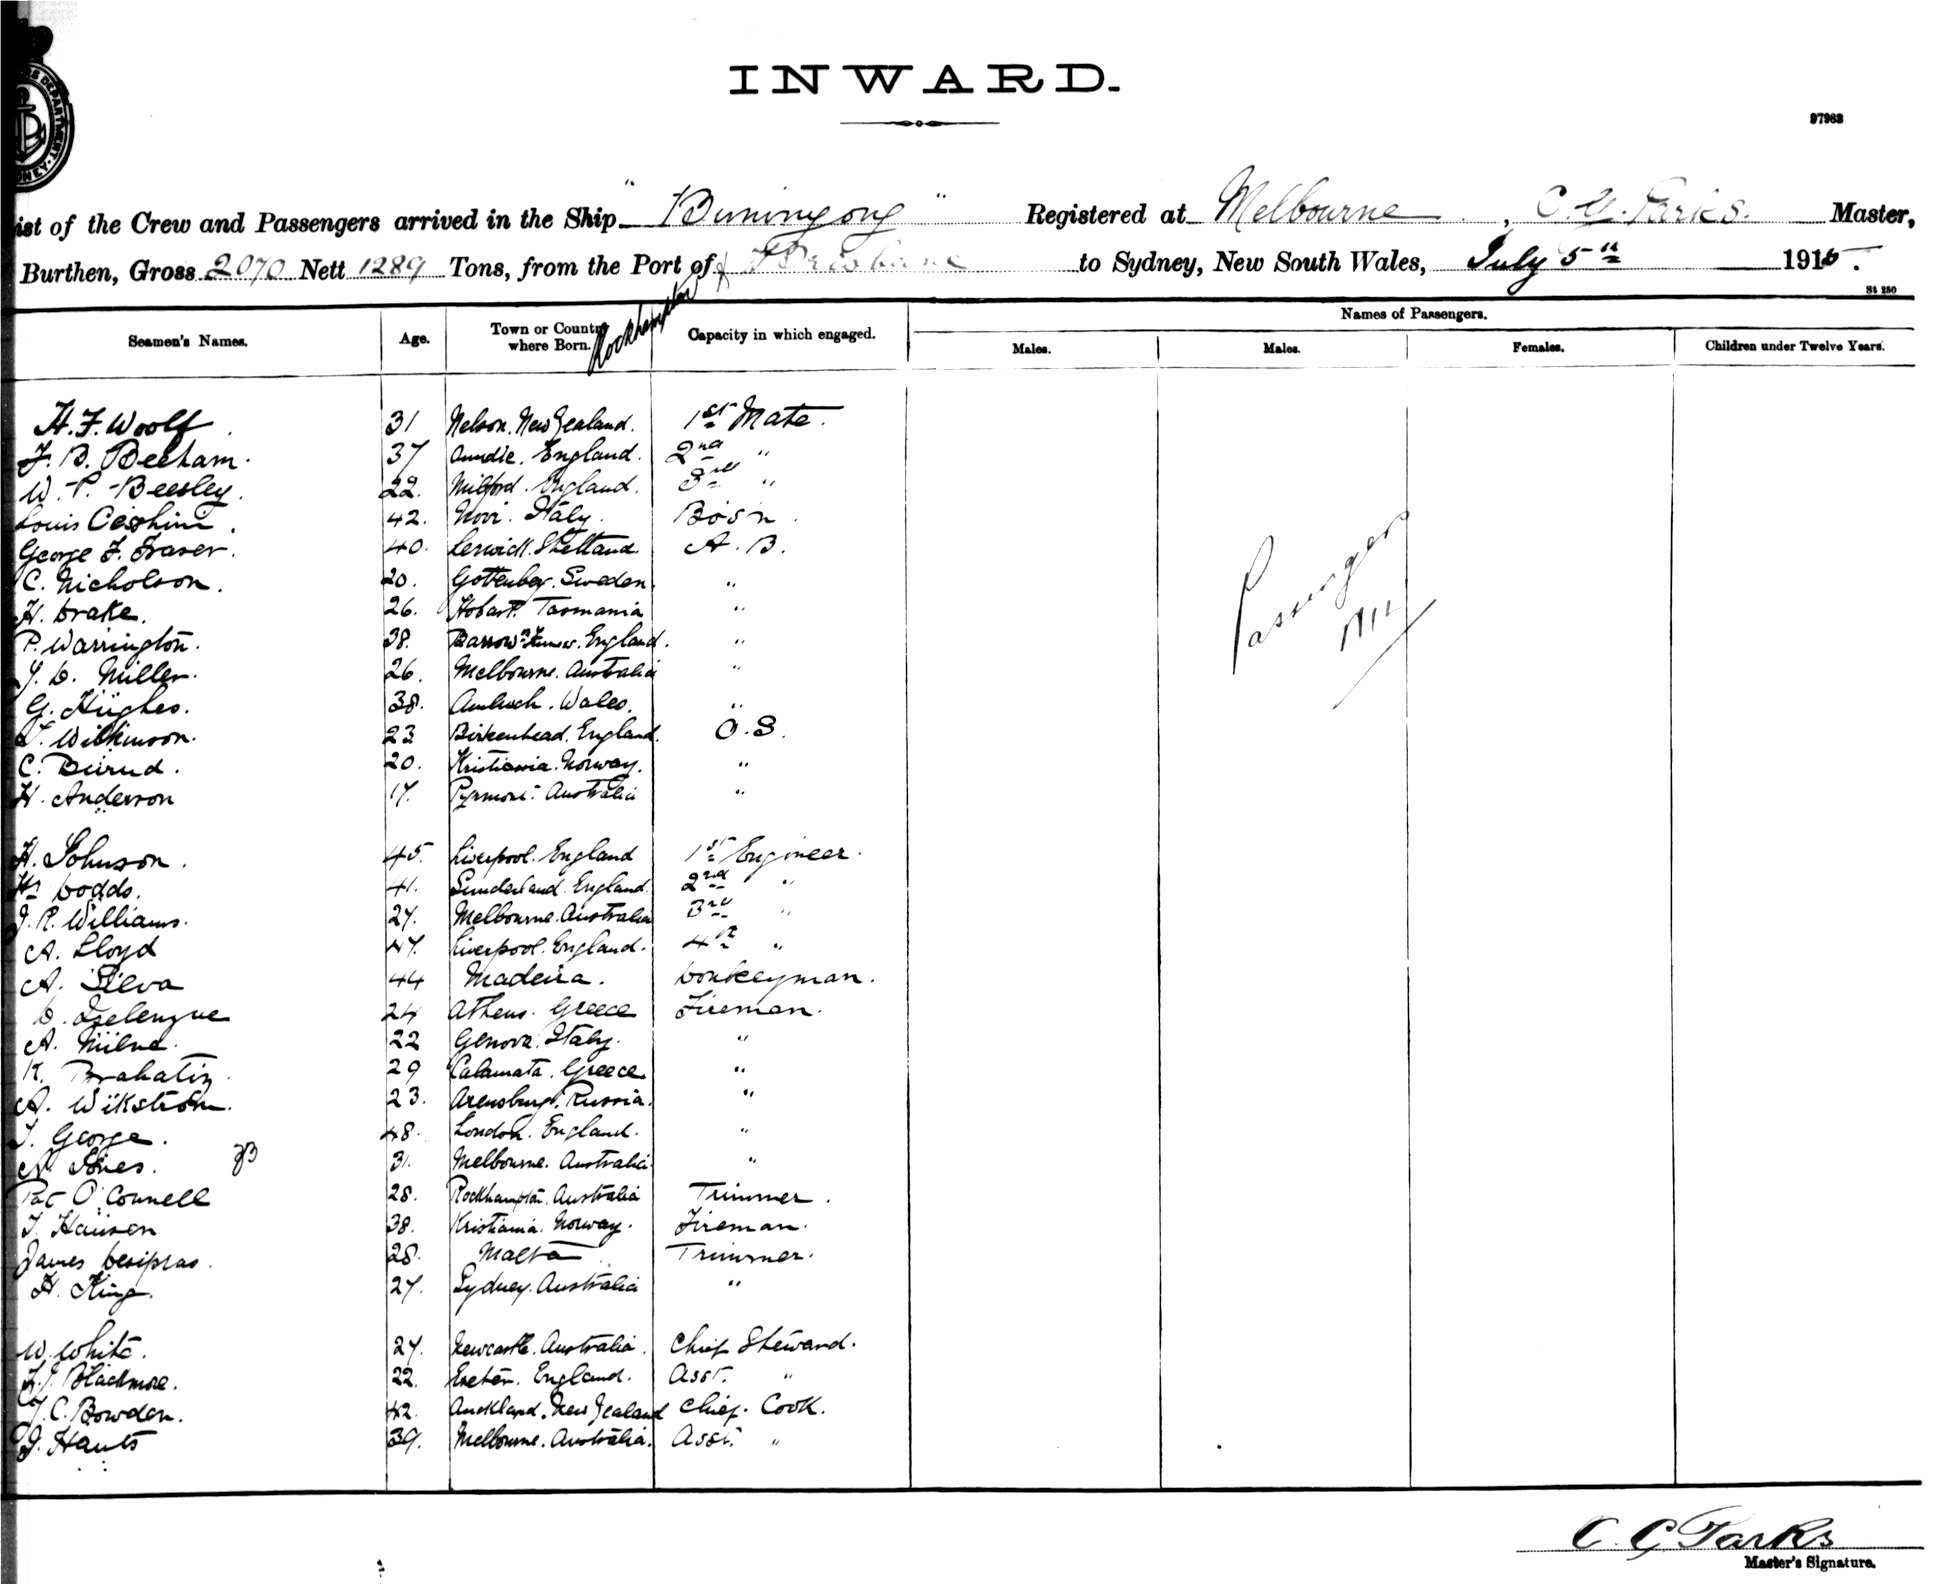 INWARD.
97983
ist of the Crew and Passengers arrived in the Ship "Buninyong" Registered at Melbourne, C. G. Parks. Master,
Burthen, Gross 2070 Nett 1289 Tons, from the Port of Brisbane to Sydney, New South Wales, July 5th 1915.
Rockhampton
St 250
Seamen's Names. Age. Town or Country where Born. Capacity in which engaged. Names of Passengers.
Males. Males. Females. Children under Twelve Years.
H. F. Woolf. 31 Nelson. New Zealand. 1st Mate.
F. B. Beeham. 37 England. 2nd "
W. P. Beesley. 22. Milford. England. 3rd "
Louis 42. Novi. Italy. Bosn.
George F. Fraser. 40. Lerwick. Shetland. A. B.
C. Nicholson. 20. Gottenberg. Sweden. "
H. Drake. 26. Hobart. Tasmania "
P. Warrington. 38. Barrow England. "
D. Miller. 26. Melbourne. Australia "
G. Hughes. 38. Amlwch. Wales. "
Wilkinson. 23 Birkenhead. England. O. S.
C. 20. Kristiania. Norway. "
H. Anderson 17. Pyrmont. Australia "
Passengers
Nil
H. Johnson. 45. Liverpool. England 1st Engineer.
Dodds. 41. Sunderland. England. 2nd "
J. R. Williams. 27. Melbourne. Australia 3rd "
A. Lloyd 47. Liverpool. England. 4th "
A. Silva 44 Madeira. Donkeyman.
D. 24 Athens. Greece Fireman.
A. Milne. 22 Genova. Italy. "
K. 29 Calamata. Greece "
A. Wikström. 23. Arensburg. Russia. "
George. 48. London. England. "
Jones. 31. Melbourne. Australia "
Pat O'Connell 28. Rockhampton. Australia Trimmer.
Hansen 38. Kristiania. Norway. Fireman.
James 28. Malta Trimmer.
H. King. 27. Sydney. Australia "
W. White. 27. Newcastle. Australia. Chief Steward.
Blackmore. 22. Exeter. England. Asst. "
C. Bowden. 42. Auckland. New Zealand Chief. Cook.
39. Melbourne. Australia. Asst. "
C. G. Parks
Master's Signature.